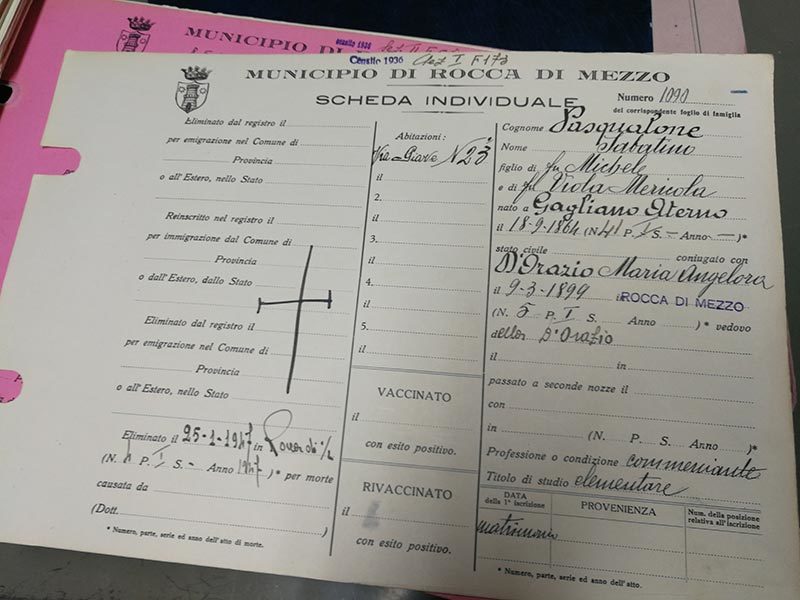 MUNICIPIO DI
Censito 1936
Censito 1936 Sez I F 173
MUNICIPIO DI ROCCA DI MEZZO
SCHEDA INDIVIDUALE
Numero 1090
del corrispondente foglio di famiglia
Eliminato dal registro il
per emigrazione nel Comune di
Provincia
o all'Estero, nello Stato
Reinscritto nel registro il
per immigrazione dal Comune di
Provincia
o dall'Estero, dallo Stato
Eliminato dal registro il
per emigrazione nel Comune di
Provincia
o all'Estero, nello Stato
Eliminato il 25-1-1947 in
(N. 1 P. I S. - Anno 1947)* per morte
causata da
(Dott. )
* Numero, parte, serie ed anno dell'atto di morte.
Abitazioni:
Via Piave N 23
il
2.
il
3.
il
4.
il
5.
il
VACCINATO
il
con esito positivo.
RIVACCINATO
il
con esito positivo.
Cognome Pasqualone
Nome Sabatino
figlio di fu Michele
e di fu Viola Mericola
nato a Gagliano Aterno
il 18-9-1864 (N. 41 P. I S. - Anno - )*
stato civile coniugato con
D'Orazio Maria Angelora
il 9-3-1899 ROCCA DI MEZZO
(N. 5 P. I S. Anno )* vedovo
della D'Orazio
il in
passato a seconde nozze il
con
in (N. P. S. Anno )*
Professione o condizione commerciante
Titolo di studio elementare
DATA della 1ª iscrizione
PROVENIENZA
Num. della posizione relativa all'iscrizione
* Numero, parte, serie ed anno dell'atto.